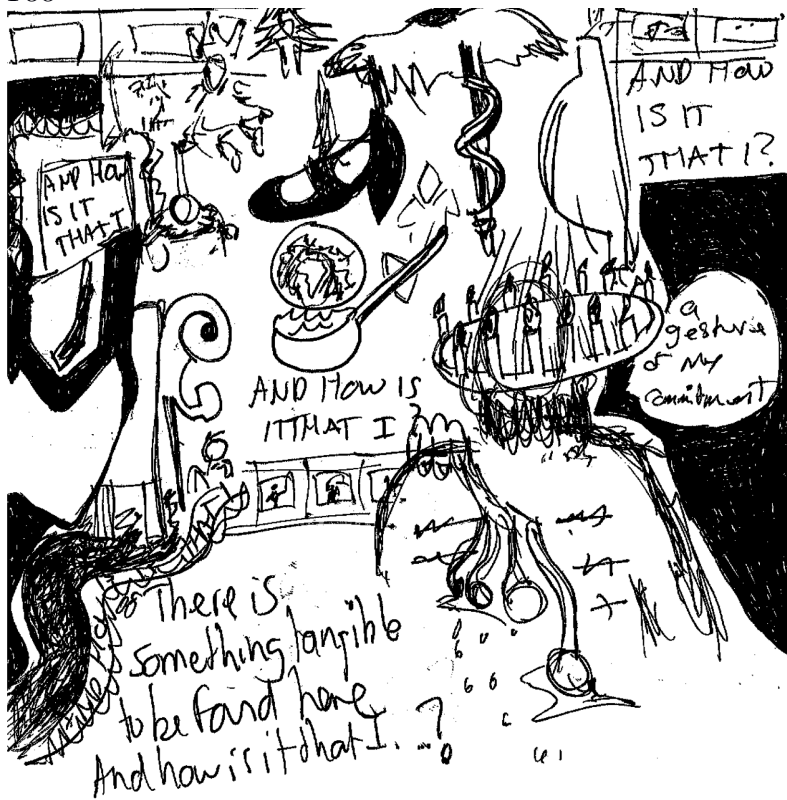 AND HOW
IS IT
THAT I?
AND HOW
IS IT
THAT I
a
gesture
of my
commitment
AND HOW IS
IT THAT I?
There is
something tangible
to be found here
And how is it that I...?